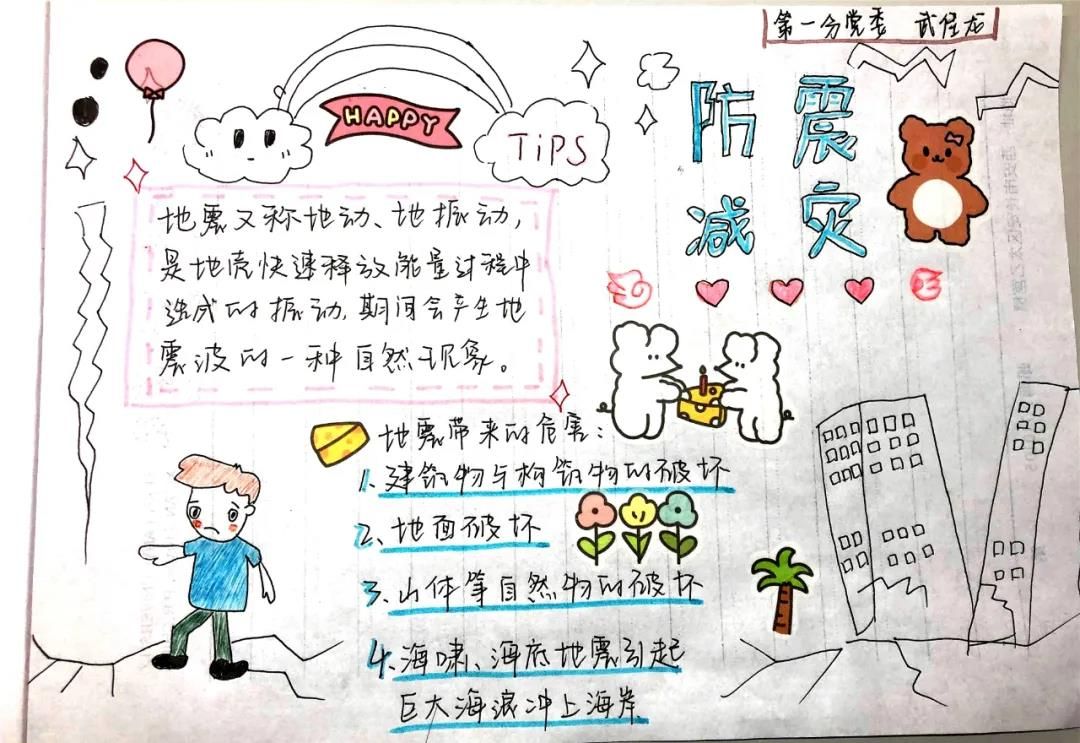 第一分党委 武佳龙
HAPPY
TiPS
防震
减灾
地震又称地动、地振动,
是地壳快速释放能量过程中
造成的振动,期间会产生地
震波的一种自然现象。
地震带来的危害:
1、建筑物与构筑物的破坏
2、地面破坏
3、山体等自然物的破坏
4、海啸、海底地震引起
巨大海浪冲上海岸